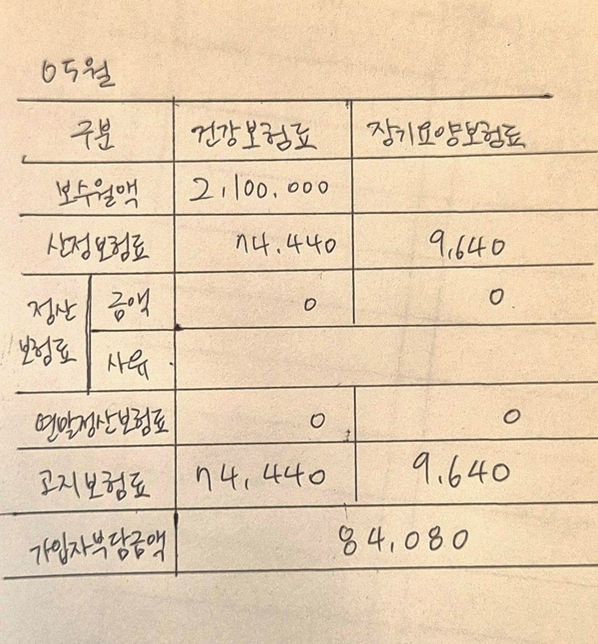 05월
구분 건강보험료 장기요양보험료
보수월액 2,100,000
산정보험료 74,440 9,640
정산보험료 금액 0 0
사유
연말정산보험료 0 0
고지보험료 74,440 9,640
가입자부담금액 84,080